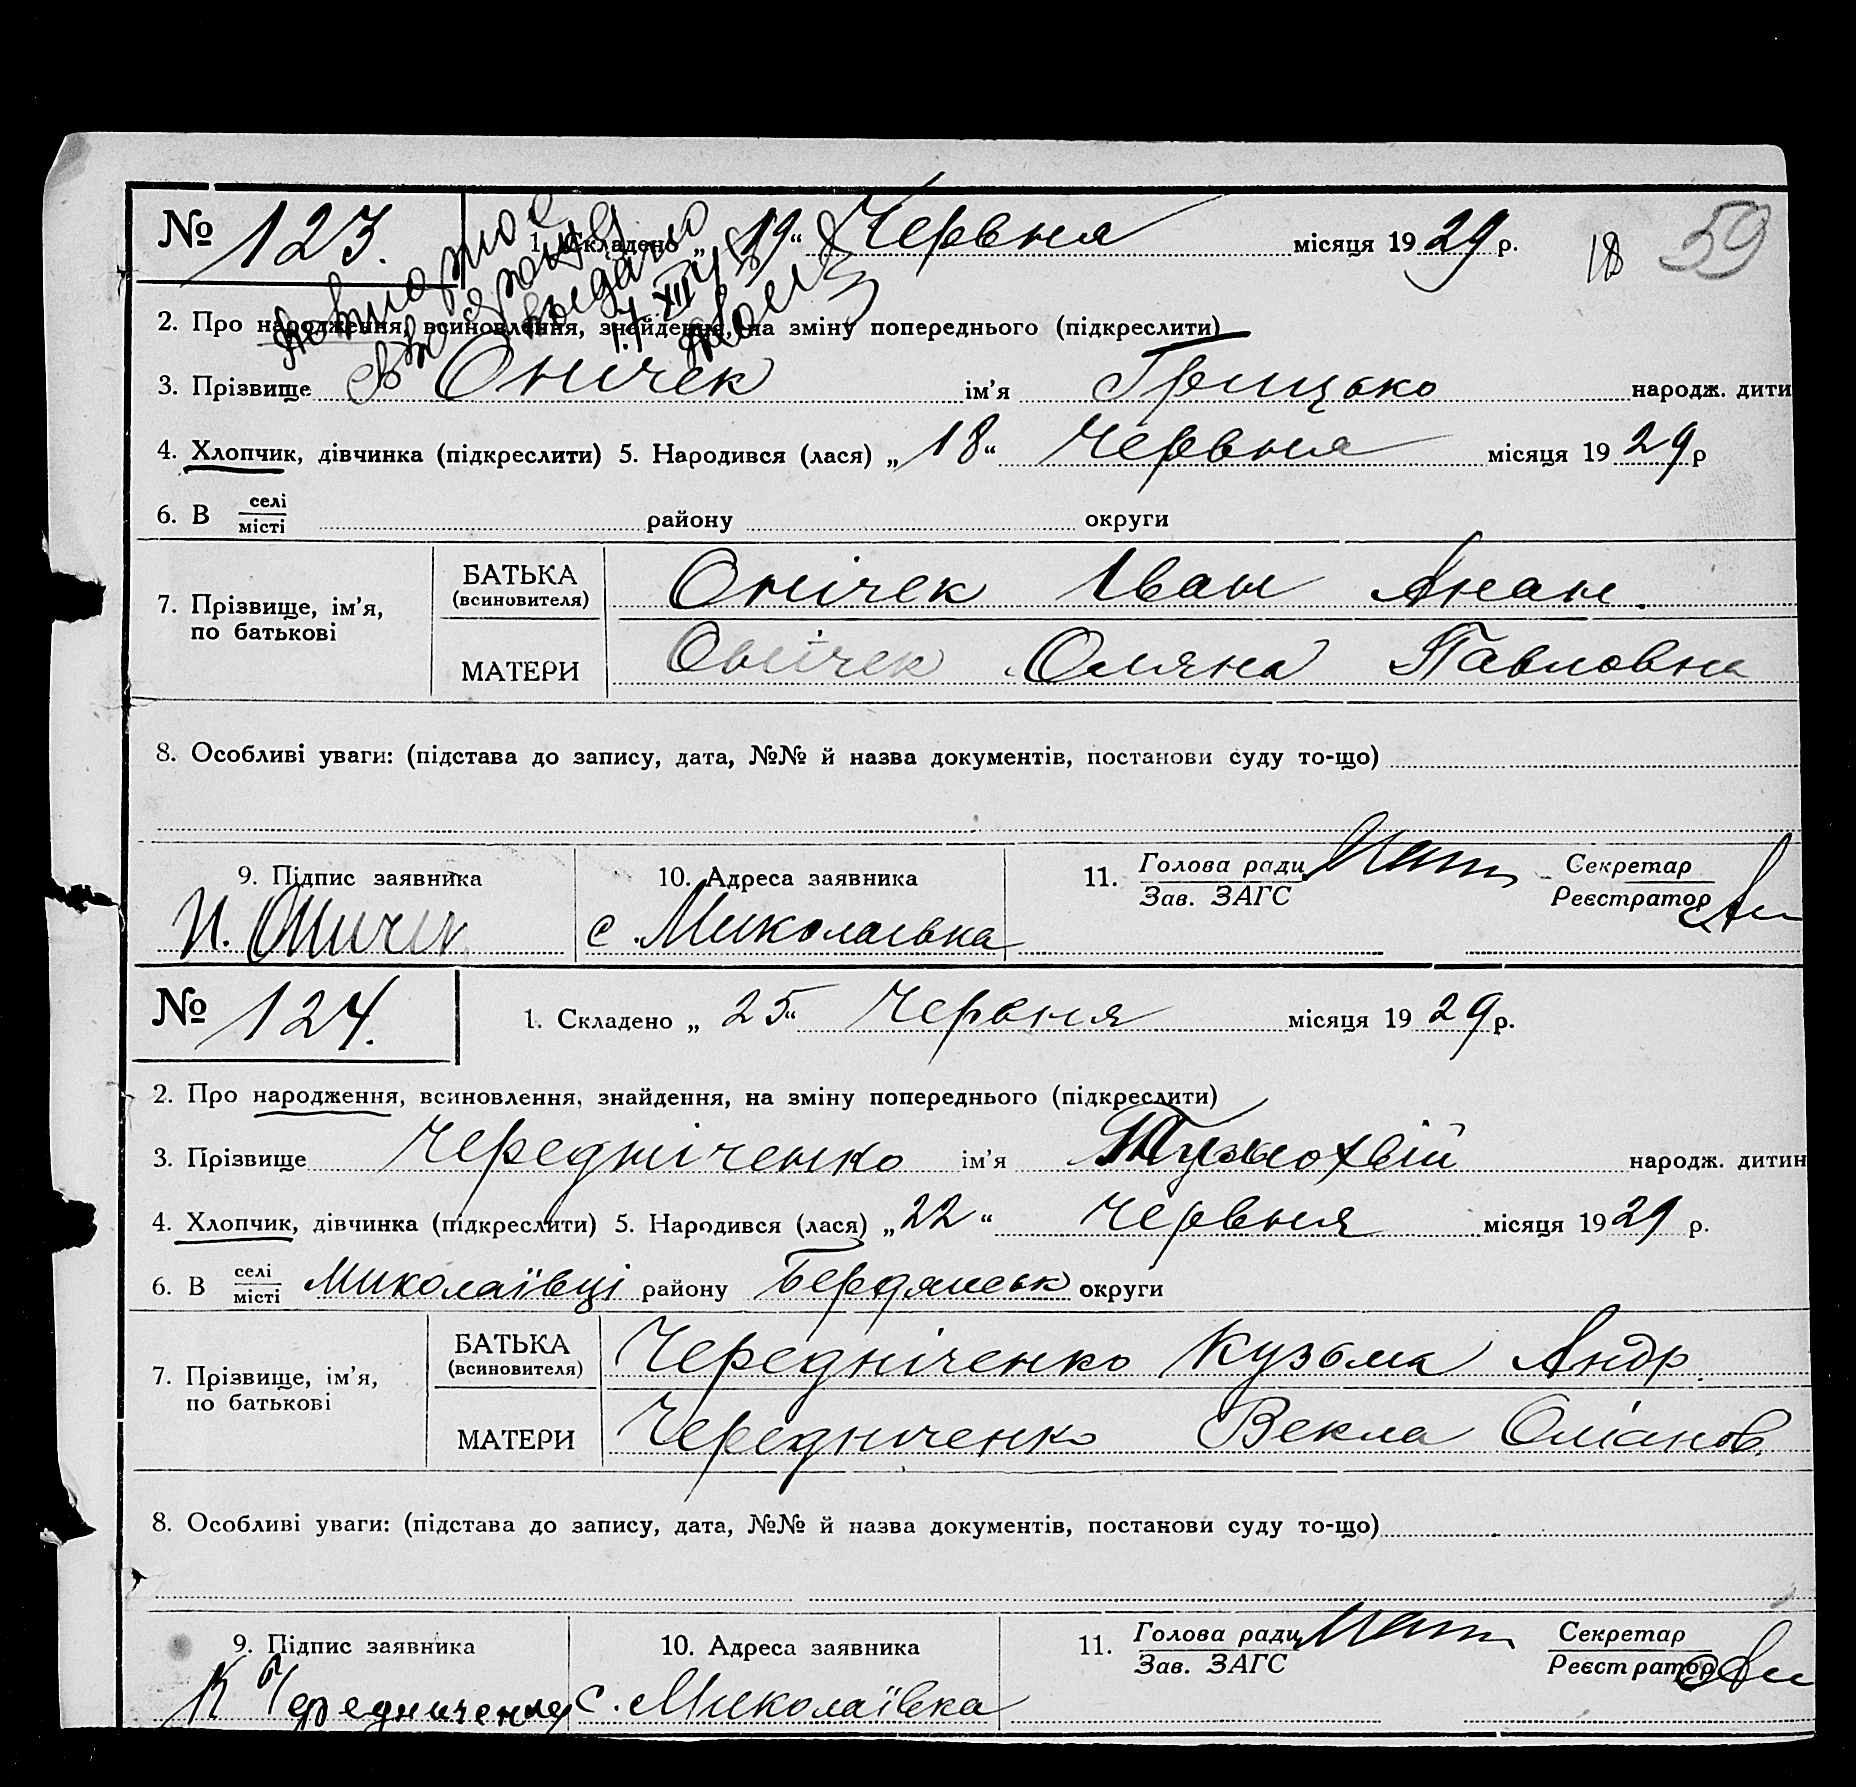 № 123. 1. Складено „ 19 “ Червня місяця 19 29 р. 18 59
Повторное
свидетельство
выдано
17.XII
2. Про народження, всиновлення, знайдення, на зміну попереднього (підкреслити)
3. Прізвище Оничек ім’я Грицько народж. дити
4. Хлопчик, дівчинка (підкреслити) 5. Народився (лася) „ 18 “ Червня місяця 19 29 р
6. В селі місті району округи
7. Прізвище, ім’я, по батькові
БАТЬКА (всиновителя) Онічек Іван Анан.
МАТЕРИ Онічек Оляна Павловна
8. Особливі уваги: (підстава до запису, дата, №№ й назва документів, постанови суду то-що)
9. Підпис заявника 10. Адреса заявника 11. Голова ради Зав. ЗАГС Секретар Реєстратор
И. Оничек с. Миколаївка
№ 124. 1. Складено „ 25 “ Червня місяця 19 29 р.
2. Про народження, всиновлення, знайдення, на зміну попереднього (підкреслити)
3. Прізвище Чередніченко ім’я Тимохвій народж. дитин
4. Хлопчик, дівчинка (підкреслити) 5. Народився (лася) „ 22 “ Червня місяця 19 29 р.
6. В селі місті Миколаївці району Бердянськ округи
7. Прізвище, ім’я, по батькові
БАТЬКА (всиновителя) Чередніченко Кузьма Андр.
МАТЕРИ Чередниченко Векла Оліанов.
8. Особливі уваги: (підстава до запису, дата, №№ й назва документів, постанови суду то-що)
9. Підпис заявника 10. Адреса заявника 11. Голова ради Зав. ЗАГС Секретар Реєстратор
К Чередниченко с. Миколаївка